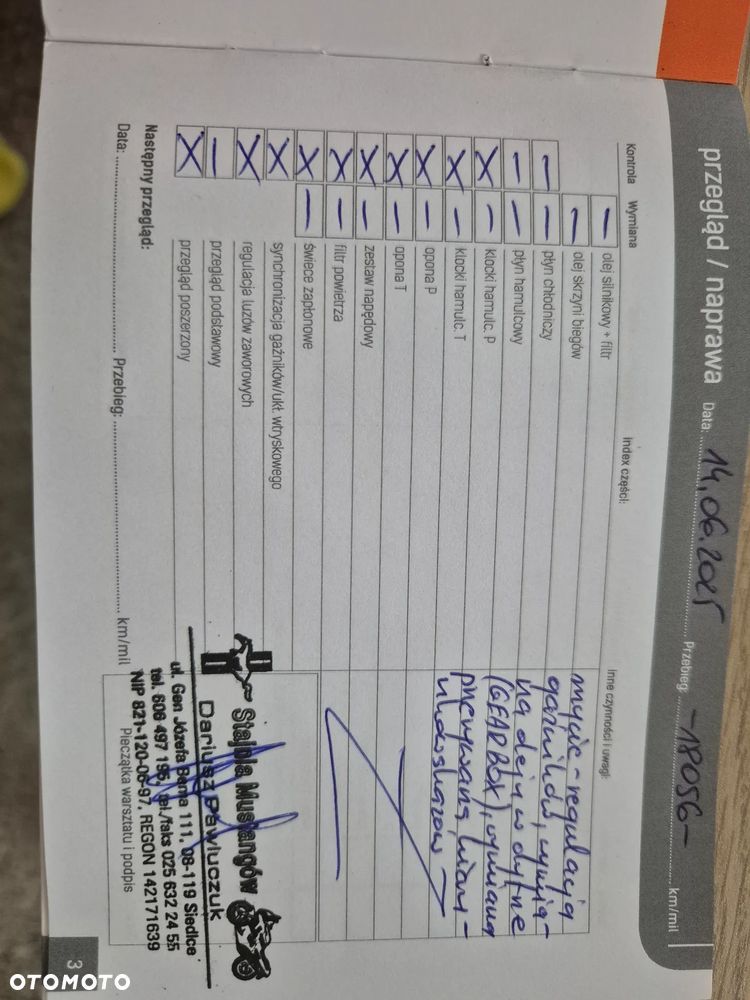 przegląd / naprawa Data: 14.06.2025 Przebieg: -18056- km/mil
Kontrola Wymiana Index części: Inne czynności i uwagi:
— olej silnikowy + filtr
— olej skrzyni biegów
— — płyn chłodniczy
— — płyn hamulcowy
X — klocki hamulc. P
X — klocki hamulc. T
X — opona P
X — opona T
X — zestaw napędowy
X — filtr powietrza
X — świece zapłonowe
X synchronizacja gaźników/ukł. wtryskowego
X regulacja luzów zaworowych
— przegląd podstawowy
X przegląd poszerzony
mycie - regulacja
gaźników, wymia-
na oleju w dyfrze
(GEARBOX), wymiana
Następny przegląd:
Data: Przebieg: km/mil
Stajnia Mustangów
Dariusz Pawluczuk
ul. Gen Józefa Bema 111, 08-119 Siedlce
tel. 606 497 195, tel./faks 025 632 24 55
NIP 821-120-06-97, REGON 142171639
Pieczątka warsztatu i podpis
3
OTOMOTO